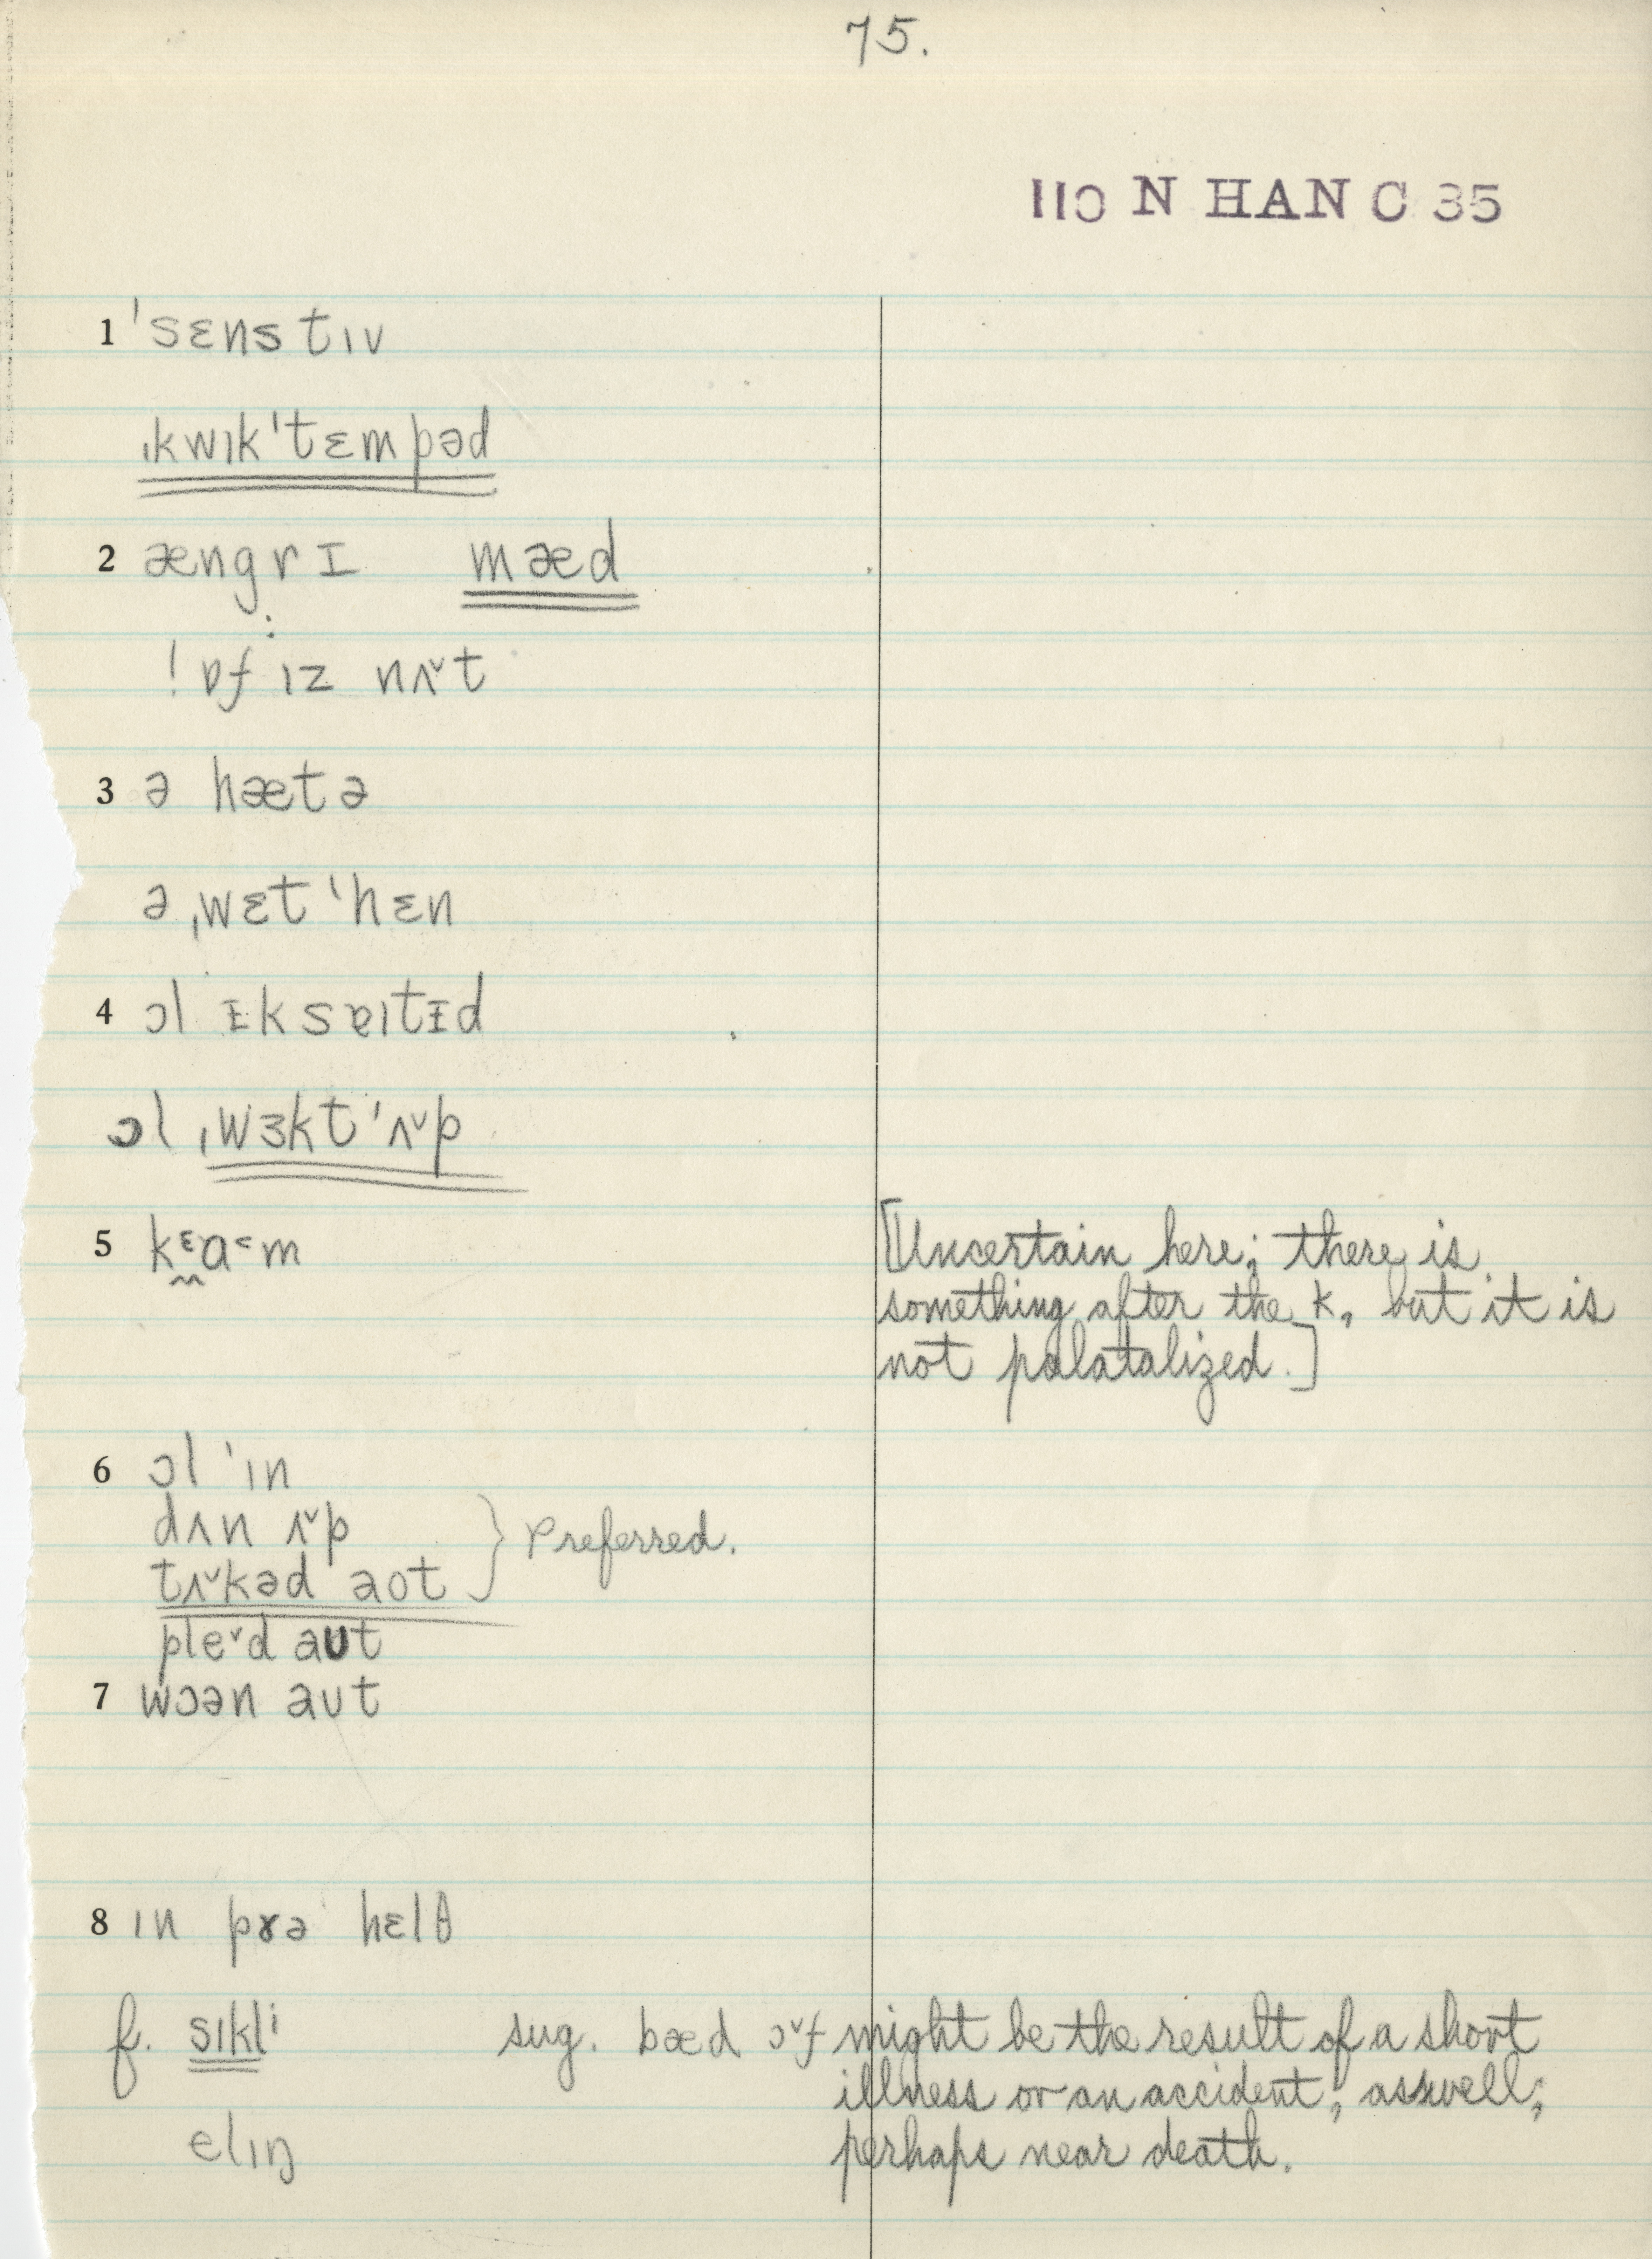 75.
110 N HAN C 35
1 ˈsɛnstɪv
ˌkwɪkˈtɛmpəd
2 æŋgrɪ mæd
! ɒf ɪz nʌ˅t
3 ə hætə
ə ˌwɛt ˈhɛn
4 ɔl ɪksɐɪtɪd
ɔl ˌwɜktˈʌ˅p
5 kᵋa˂m [Uncertain here; there is
something after the k, but it is
not palatalized.]
6 ɔl ˈɪn
dʌn ʌ˅p
tʌ˅kəd aot } Preferred.
ple˅d aʊt
7 wɔən aʊt
8 ɪn pɤə hɛlθ
f. sɪklⁱ sug. bæd ɔ˅f might be the result of a short
illness or an accident, as well;
elɪŋ perhaps near death.